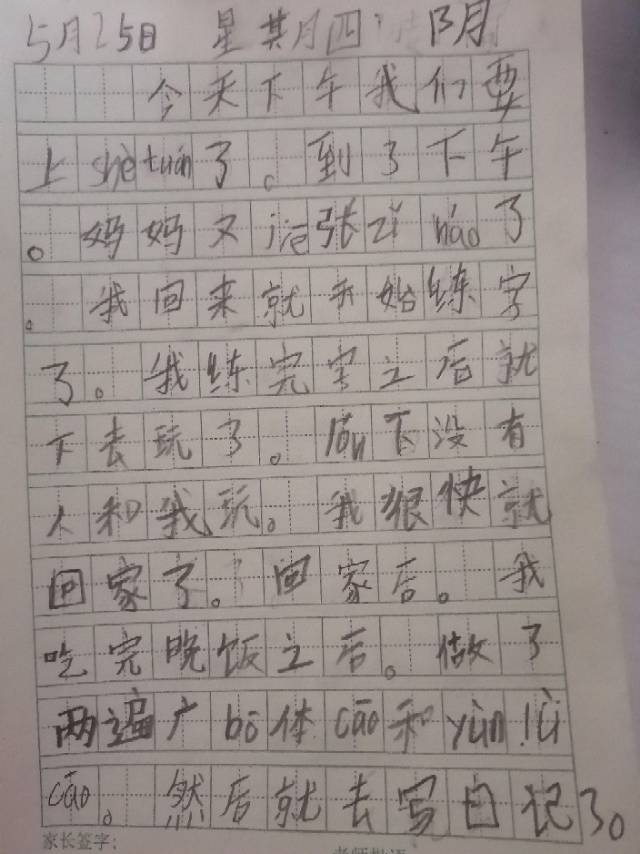 5月25日 星其月四 阴
今天下午我们要
上shètuán了。到了下午
。妈妈又jiē张zǐháo了
。我回来就开始练字
了。我练完字之后就
下去玩了。lóu下没有
人和我玩。我很快就
回家了。回家后。我
吃完晚饭之后。做了
两遍广bō体cāo和yùnlǜ
cāo。然后就去写日记了。
家长签字: